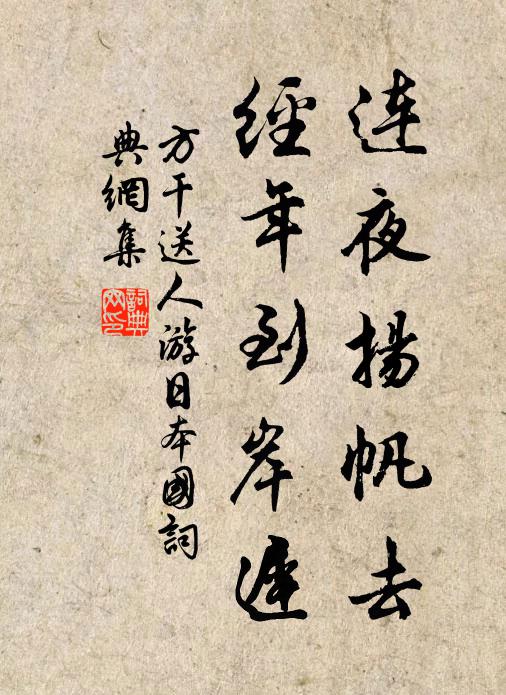 连夜揚帆去
經年到岸遲
方干送人游日本國詞
典網集
詞典
网印